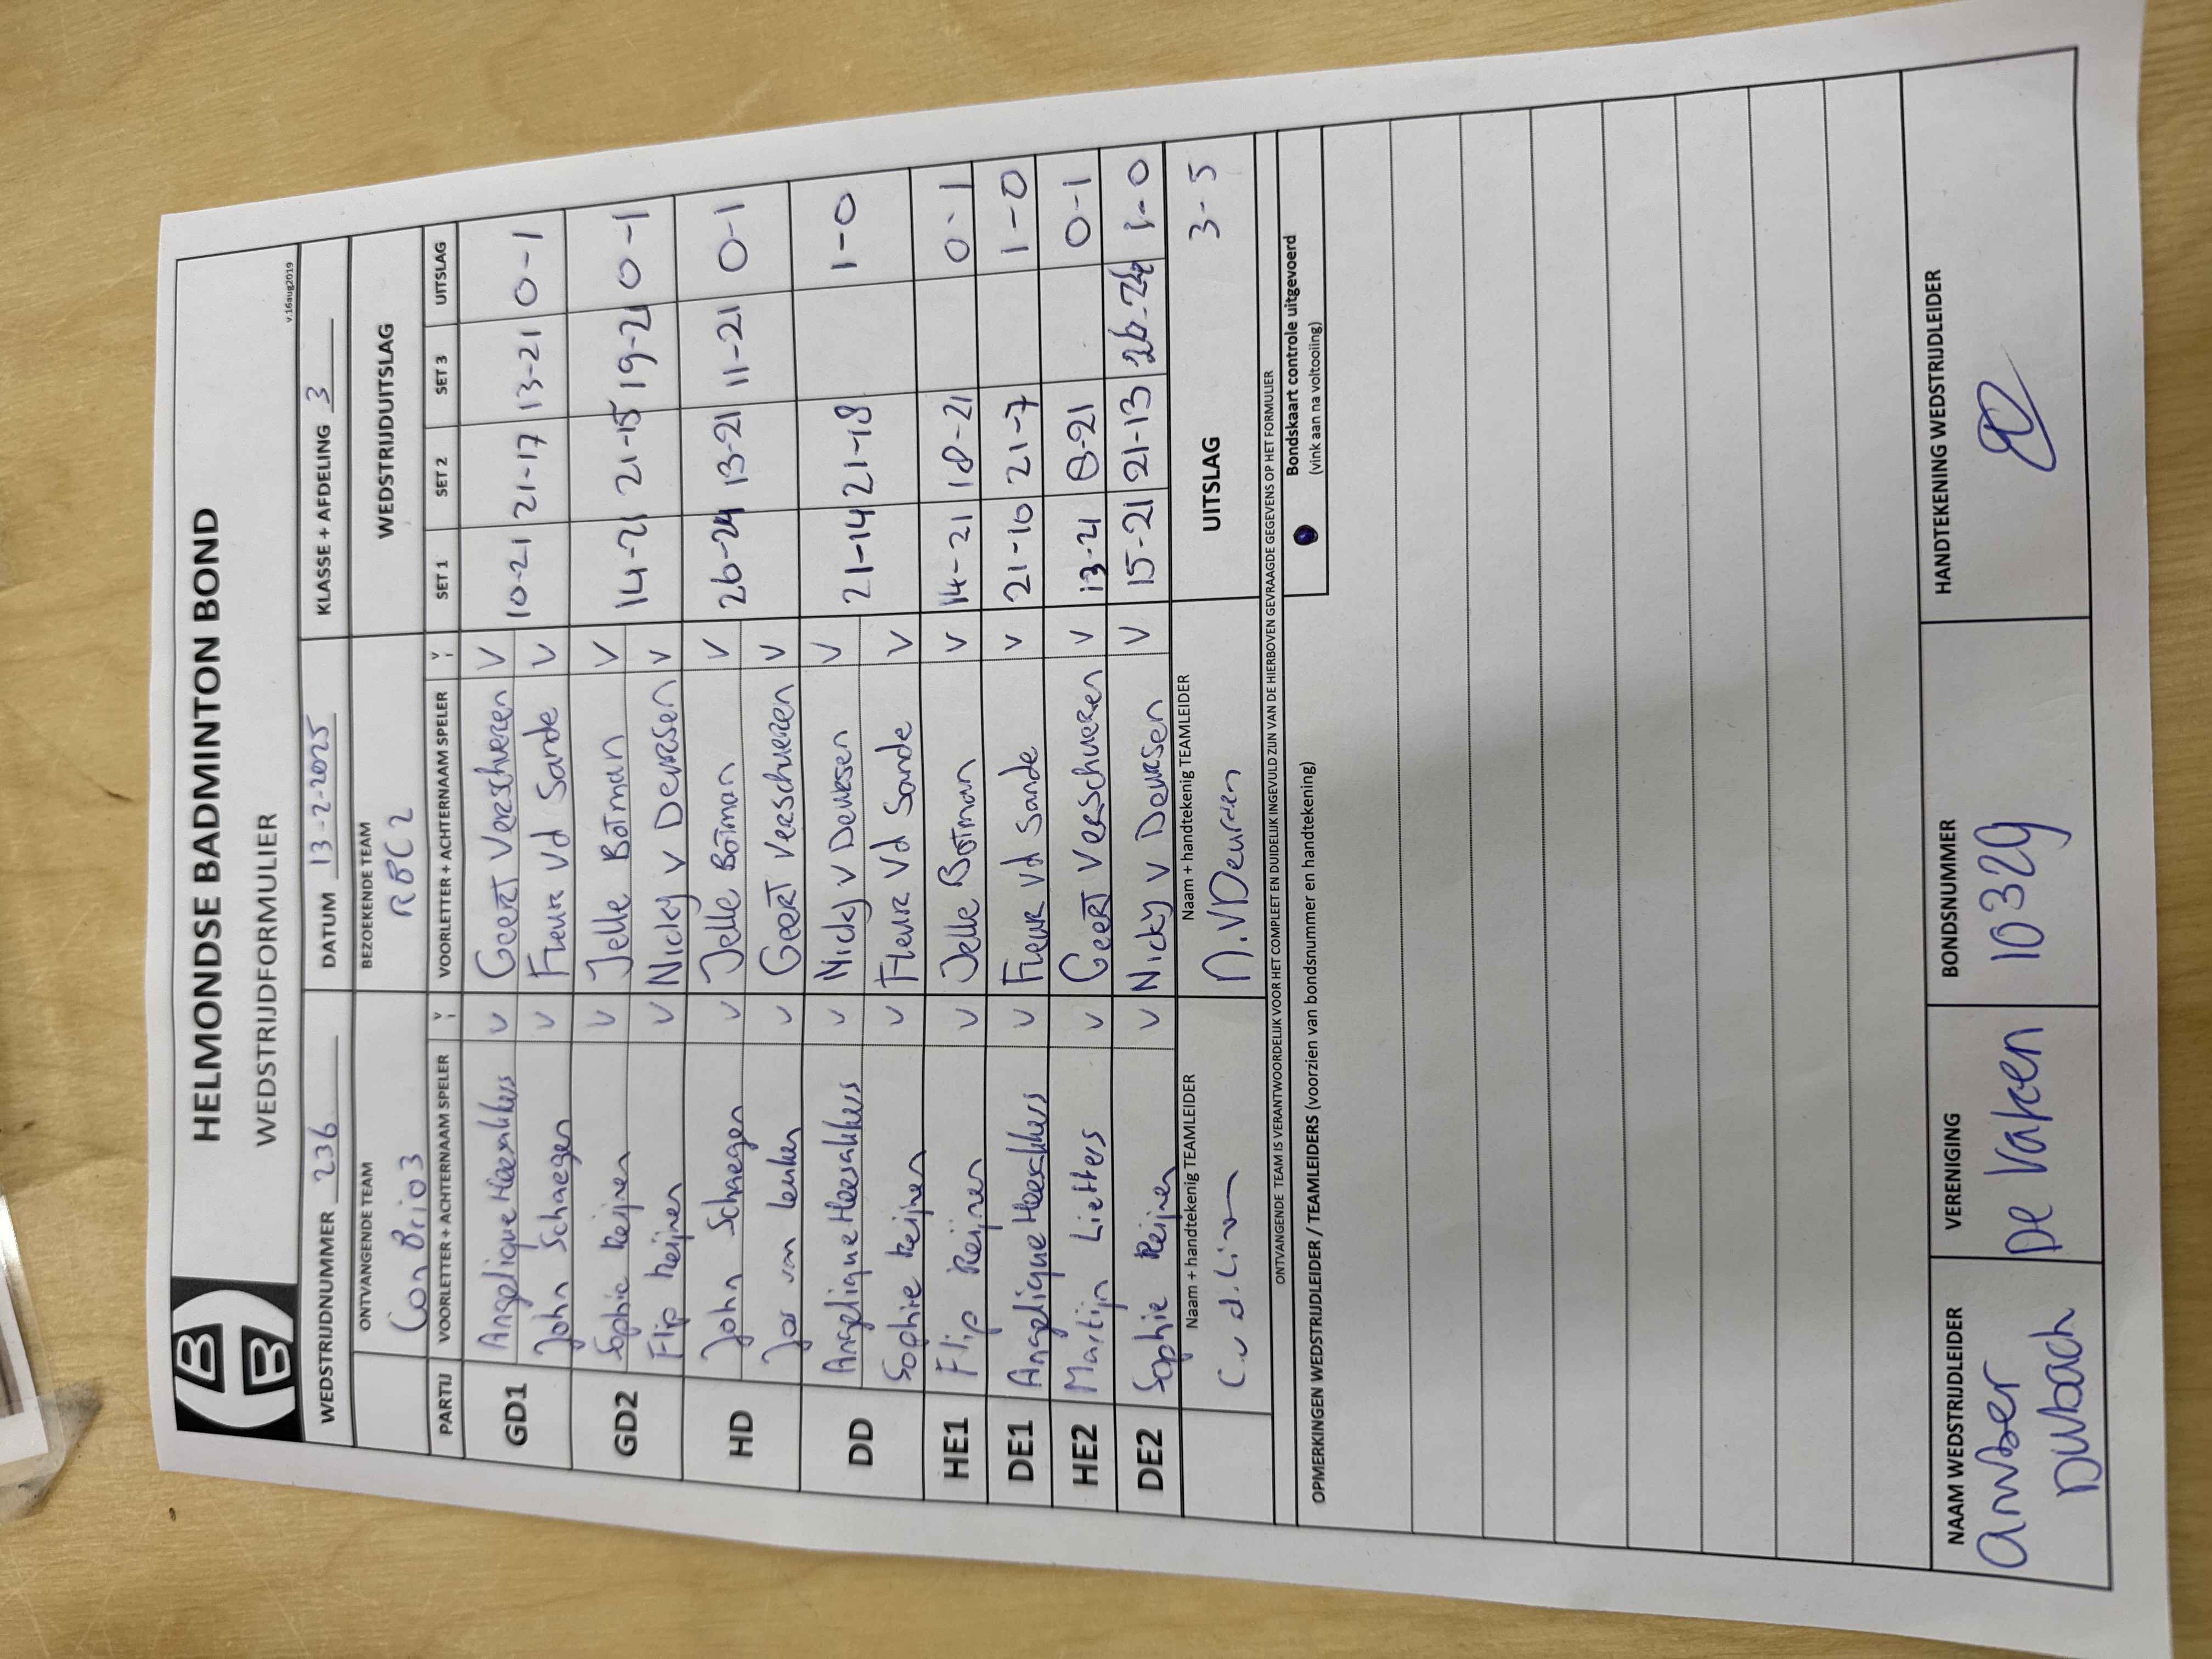 HELMONDSE BADMINTON BOND
WEDSTRIJDFORMULIER
v.16aug2019
WEDSTRIJDNUMMER 236 DATUM 13-2-2025 KLASSE + AFDELING 3
ONTVANGENDE TEAM BEZOEKENDE TEAM WEDSTRIJDUITSLAG
Con Brio 3 RBC 2
PARTIJ VOORLETTER + ACHTERNAAM SPELER V VOORLETTER + ACHTERNAAM SPELER V SET 1 SET 2 SET 3 UITSLAG
GD1 Angelique Heesakkers V Geert Verschueren V 10-21 21-17 13-21 0-1
John Schaeger V Fleur Vd Sande V
GD2 Sophie Reijnen V Jelle Botman V 14-21 21-15 19-21 0-1
Flip Reijnen V Nicky v Deursen V
HD John Schaeger V Jelle Botman V 26-24 13-21 11-21 0-1
Jos van V Geert Verschueren V
DD Angelique Heesakkers V Nicky v Deursen V 21-14 21-18 1-0
Sophie Reijnen V Fleur Vd Sande V
HE1 Flip Reijnen V Jelle Botman V 14-21 18-21 0-1
DE1 Angelique Heesakkers V Fleur Vd Sande V 21-10 21-7 1-0
HE2 Martijn V Geert Verschueren V 13-21 8-21 0-1
DE2 Sophie Reijnen V Nicky v Deursen V 15-21 21-13 26-24 1-0
Naam + handtekenig TEAMLEIDER Naam + handtekenig TEAMLEIDER UITSLAG 3-5
N.VDeursen
ONTVANGENDE TEAM IS VERANTWOORDELIJK VOOR HET COMPLEET EN DUIDELIJK INGEVULD ZIJN VAN DE HIERBOVEN GEVRAAGDE GEGEVENS OP HET FORMULIER
OPMERKINGEN WEDSTRIJDLEIDER / TEAMLEIDERS (voorzien van bondsnummer en handtekening)
Bondskaart controle uitgevoerd
(vink aan na voltooiing)
NAAM WEDSTRIJDLEIDER VERENIGING BONDSNUMMER HANDTEKENING WEDSTRIJDLEIDER
De Vaken 10329